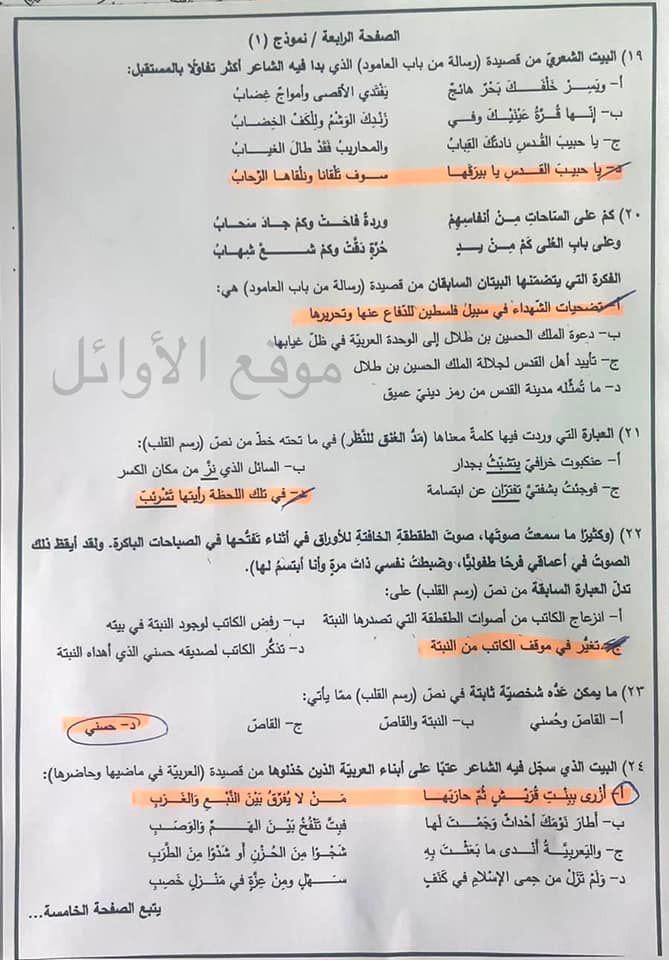 الصفحة الرابعة / نموذج (١)
١٩) البيت الشعريّ من قصيدة (رسالة من باب العامود) الذي بدا فيه الشاعر أكثر تفاؤلًا بالمستقبل:
أ- ويَسِرْ خَلْفَكَ بَحْرٌ هائجٌ يَفْتَدي الأقصى وأمواجٌ غِضابُ
ب- إنّها قُرّةُ عَيْنَيْكَ وفي زَنْدِكَ الوَشْمُ وللْكَفّ الخِضابُ
ج- يا حبيبَ القُدسِ نادتْكَ القِبابُ والمحاريبُ فَقَدْ طالَ الغيابُ
د- يا حبيبَ القدسِ يا بيرَقَها سوف تلْقانا ونلْقاها الرِّحابُ
٢٠) كمْ على السّاحاتِ مِنْ أنفاسِهِمْ وردةٌ فاحَتْ وكمْ جادَ سَحابُ
وعلى بابِ العُلى كَمْ مِنْ يدٍ حُرّةٍ دَقّتْ وكم شعَّ شِهابُ
الفكرة التي يتضمنها البيتان السابقان من قصيدة (رسالة من باب العامود) هي:
أ- تضحيات الشّهداء في سبيل فلسطين للدّفاع عنها وتحريرها
ب- دعوة الملك الحسين بن طلال إلى الوحدة العربيّة في ظلّ غيابها
ج- تأييد أهل القدس لجلالة الملك الحسين بن طلال
د- ما تُمثّله مدينة القدس من رمز دينيّ عميق
موقع الأوائل
٢١) العبارة التي وردت فيها كلمةٌ معناها (مَدُّ العُنق للنَّظَر) في ما تحته خطّ من نصّ (رسم القلب):
أ- عنكبوت خرافيّ يتشبّثُ بجدار ب- السائل الذي نزّ من مكان الكسر
ج- فوجئتُ بشفتيَّ تفترّان عن ابتسامة د- في تلك اللحظة رأيتها تَشْرئبّ
٢٢) (وكثيرًا ما سمعتُ صوتَها، صوتَ الطقطقةِ الخافتةِ للأوراق في أثناء تفتّحها في الصباحات الباكرة. ولقد أيقظ ذلك
الصوتُ في أعماقي فرحًا طفوليًّا، وضبطتُ نفسي ذاتَ مرةٍ وأنا أبتسمُ لها).
تدلّ العبارة السابقة من نصّ (رسم القلب) على:
أ- انزعاج الكاتب من أصوات الطقطقة التي تصدرها النبتة ب- رفض الكاتب لوجود النبتة في بيته
ج- تغيّر في موقف الكاتب من النبتة د- تذكّر الكاتب لصديقه حسني الذي أهداه النبتة
٢٣) ما يمكن عَدُّه شخصيّة ثابتة في نصّ (رسم القلب) ممّا يأتي:
أ- القاصّ وحُسني ب- النبتة والقاصّ ج- القاصّ د- حسني
٢٤) البيت الذي سجّل فيه الشاعر عتبًا على أبناء العربيّة الذين خذلوها من قصيدة (العربيّة في ماضيها وحاضرها):
أ- أَزْرى ببِنْتِ قُرَيْشٍ ثُمّ حارَبَها مَنْ لا يُفرِّقُ بَيْنَ النَّبْعِ والغَرَبِ
ب- أَطارَ نَوْمَكَ أحْداثٌ وَجَمْتَ لَها فبِتَّ تَنْفُخُ بَيْنَ الهَمِّ والوَصَبِ
ج- واليَعربيَّةُ أنْدى ما بَعَثْتَ بِهِ شَجْوًا مِنَ الحُزْنِ أو شَدْوًا مِنَ الطَّرَبِ
د- وَلَمْ تَزَلْ مِنْ حِمى الإسْلامِ في كَنَفٍ سَهْلٍ ومِنْ عِزّةٍ في مَنْزلٍ خَصِبِ
يتبع الصفحة الخامسة...